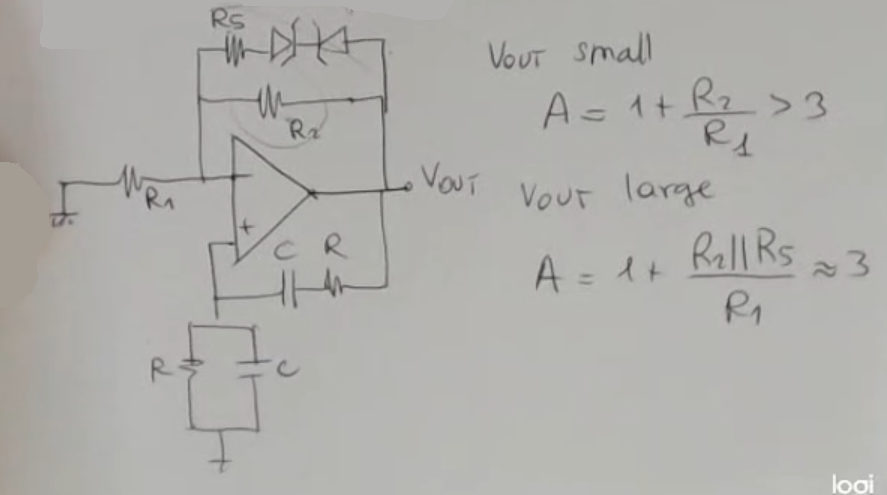 R5
R2
R1
VOUT
+
C R
R C
VOUT small
A = 1 + R2/R1 > 3
VOUT large
A = 1 + R2||R5/R1 ≈ 3